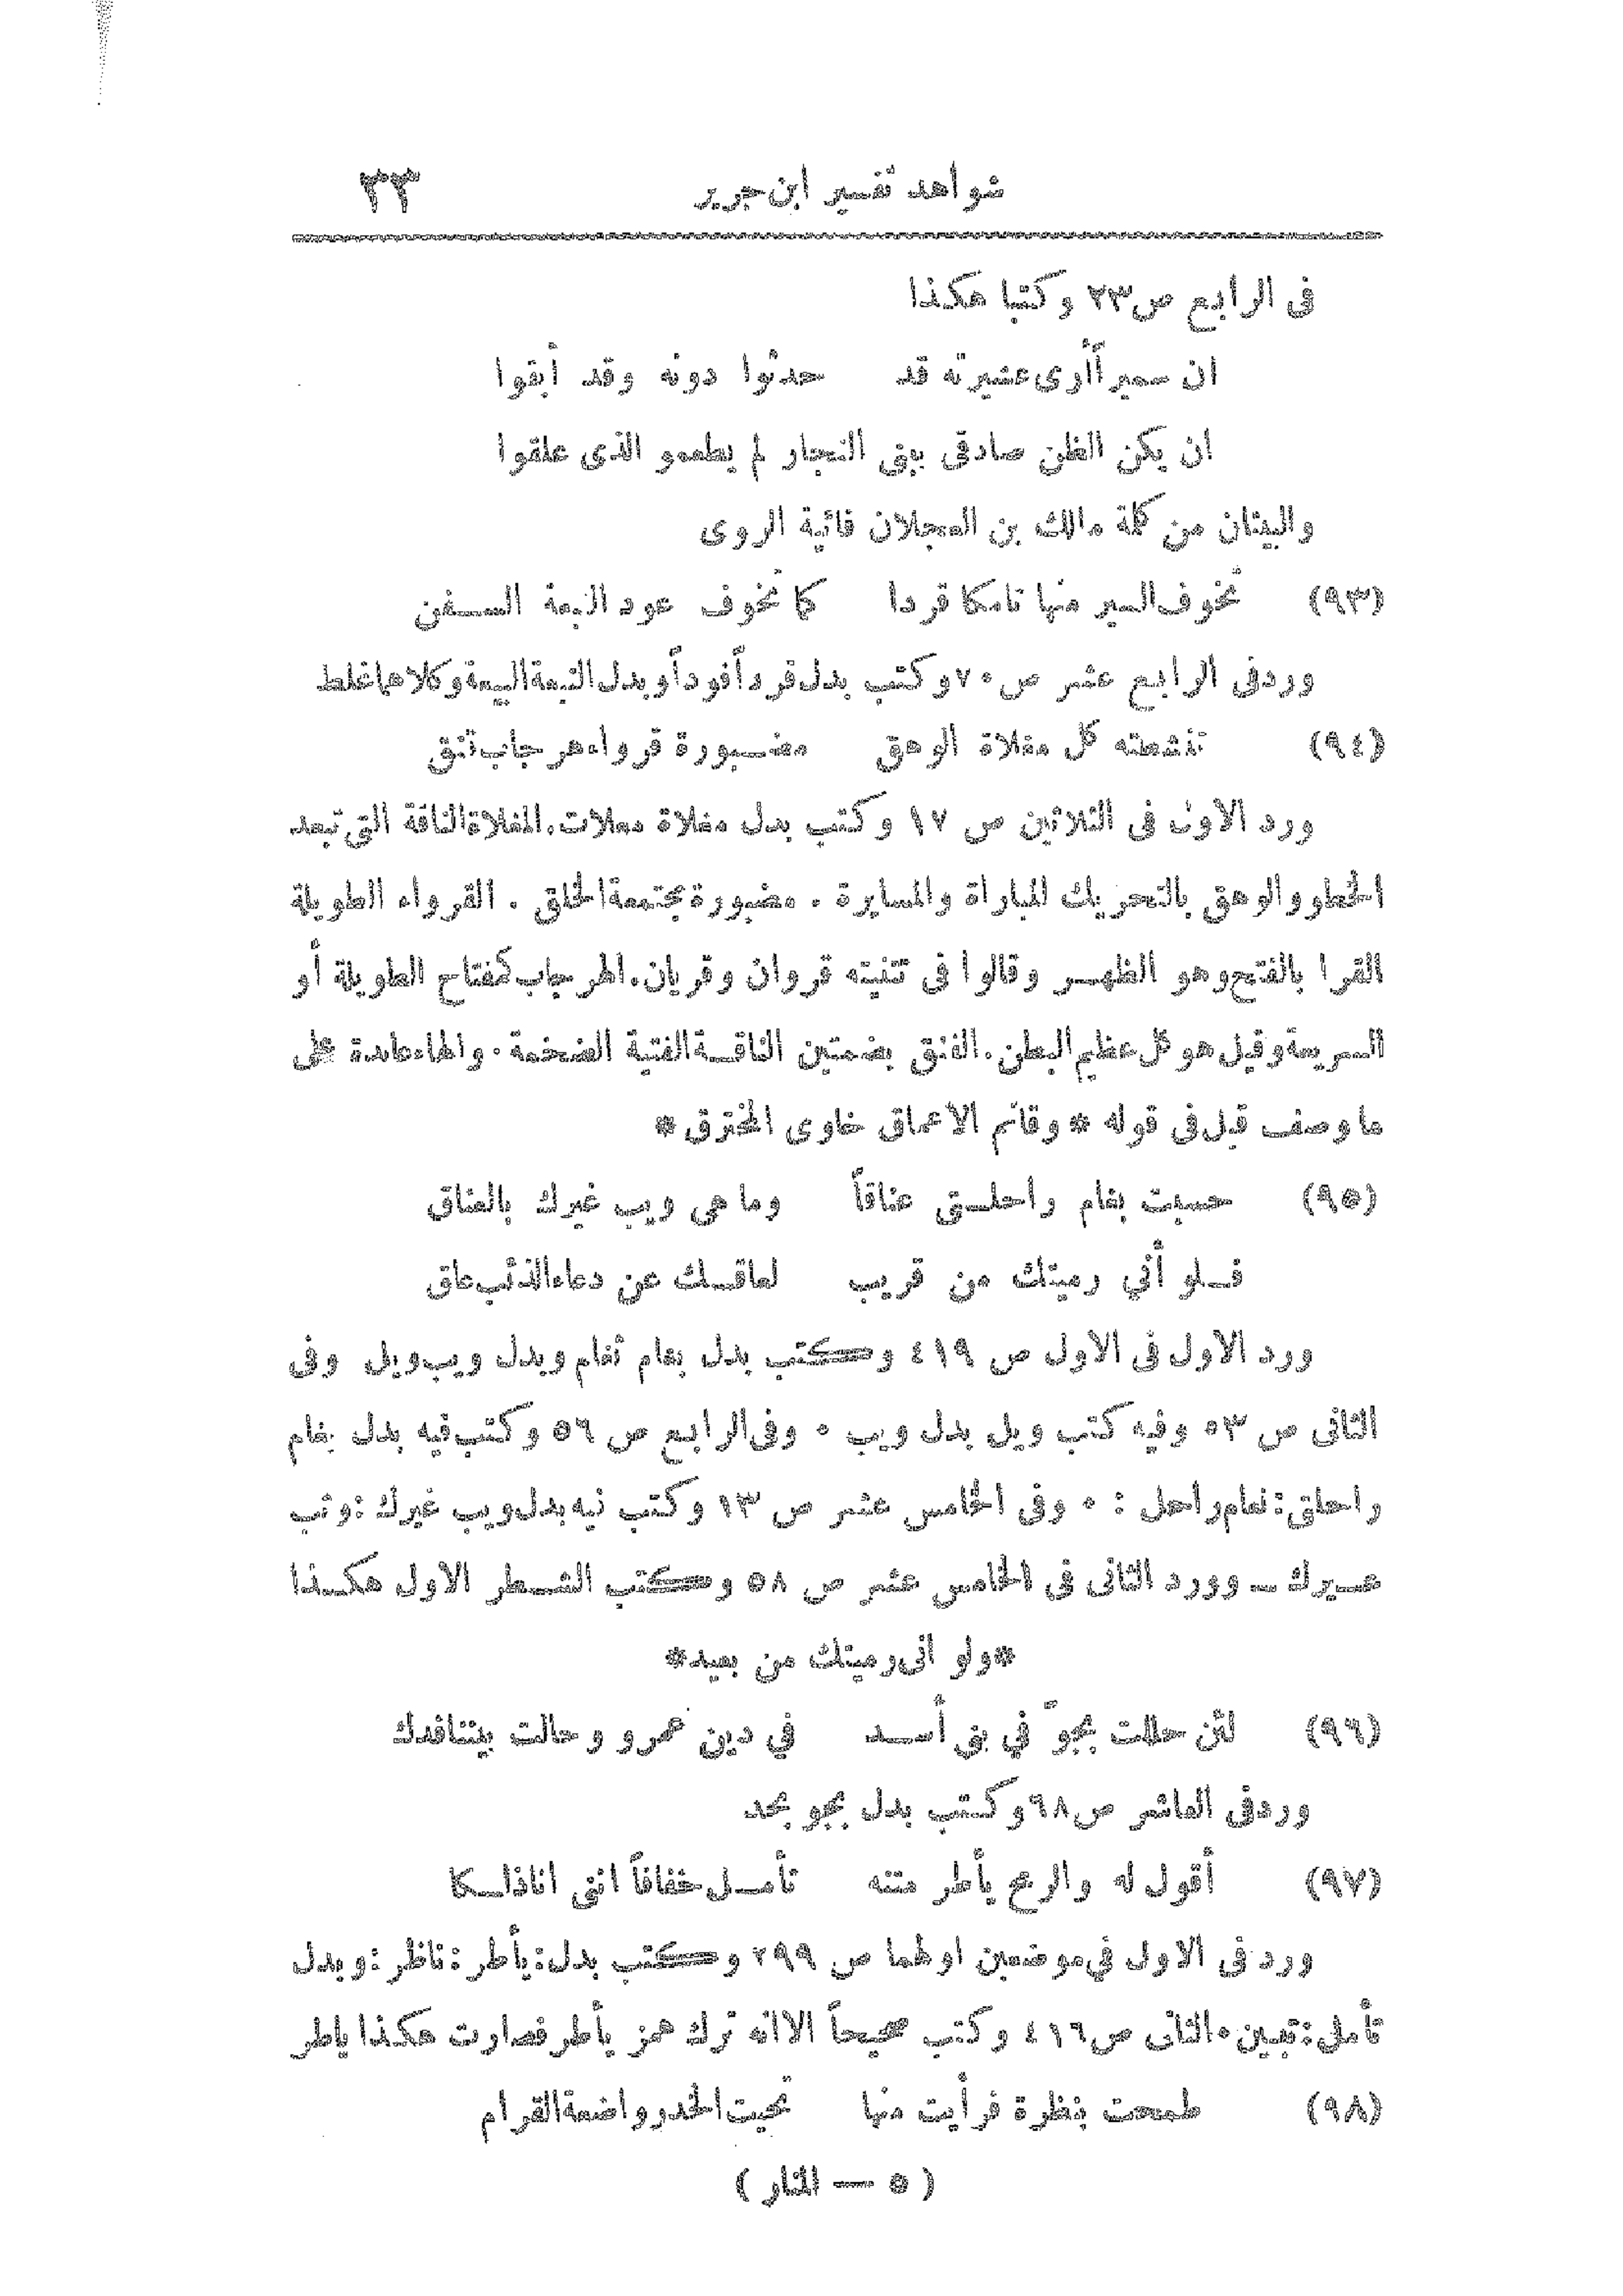 شواهد تفسير ابن جرير ٣٣
فى الرابع ص ٢٣ وكتبا هكذا
ان سميراً أرى عشيرته قد حدثوا دونه وقد أبقوا
ان يكن الظن صادقى ببنى النجار لم يطعموا الذى علقوا
والبيتان من كلمة مالك بن العجلان فائية الروى
(٩٣) تخوف السير منها تامكا قردا كما تخوف عود النبعة السفن
ورد فى الرابع عشر ص ٧٠ وكتب بدل قرداً فوداً وبدل النبعة البيعة وكلاهما غلط
(٩٤) تنشطته كل مغلاة الوهق مضبورة قرواء هرجاب فنق
ورد الاول فى الثلاثين ص ١٧ وكتب بدل مغلاة معلات. المغلاة الناقة التى تبعد
الخطو والوهق بالتحريك المباراة والمسايرة . مضبورة مجتمعة الخلق . القرواء الطويلة
القرا بالفتح وهو الظهر وقالوا فى تثنيته قروان وقريان. الهرجاب كمفتاح الطويلة أو
السريعة وقيل هو كل عظيم البطن. الفنق بضمتين الناقة الفتية الضخمة. والهاء عائدة على
ما وصف قبل فى قوله * وقاتم الأعماق خاوى المخترق *
(٩٥) حسبت بغام راحلتى عناقاً وما هى ويب غيرك بالعناق
فلو أني رميتك من قريب لعاقك عن دعاء الذئب عاق
ورد الاول فى الاول ص ٤١٩ وكتب بدل بغام ثغام وبدل ويب ويل وفى
الثانى ص ٥٣ وفيه كتب ويل بدل ويب . وفى الرابع ص ٥٦ وكتب فيه بدل بغام
راحلتى: نعام راحل : . وفى الخامس عشر ص ١٣ وكتب فيه بدل ويب غيرك : وئب
عيرك — وورد الثانى فى الخامس عشر ص ٥٨ وكتب الشطر الاول هكذا
*ولو انى رميتك من بعيد*
(٩٦) لئن حللت بجوّ في بنى أسد في دين عمرو وحالت بيننا فدك
ورد فى العاشر ص ٦٨ وكتب بدل بجو بخد
(٩٧) أقول له والرمح يأطر متنه تأمل خفافاً انني انا ذالكا
ورد فى الاول في موضعين اولهما ص ٢٩٩ وكتب بدل: يأطر: ناظر: وبدل
تأمل: تبين. الثانى ص ٤١٦ وكتب صحيحاً الا انه ترك همز يأطر فصارت هكذا ياطر
(٩٨) طمحت بنظرة فرأيت منها تحيت الخدر واضعة القرام
( ٥ — المنار )